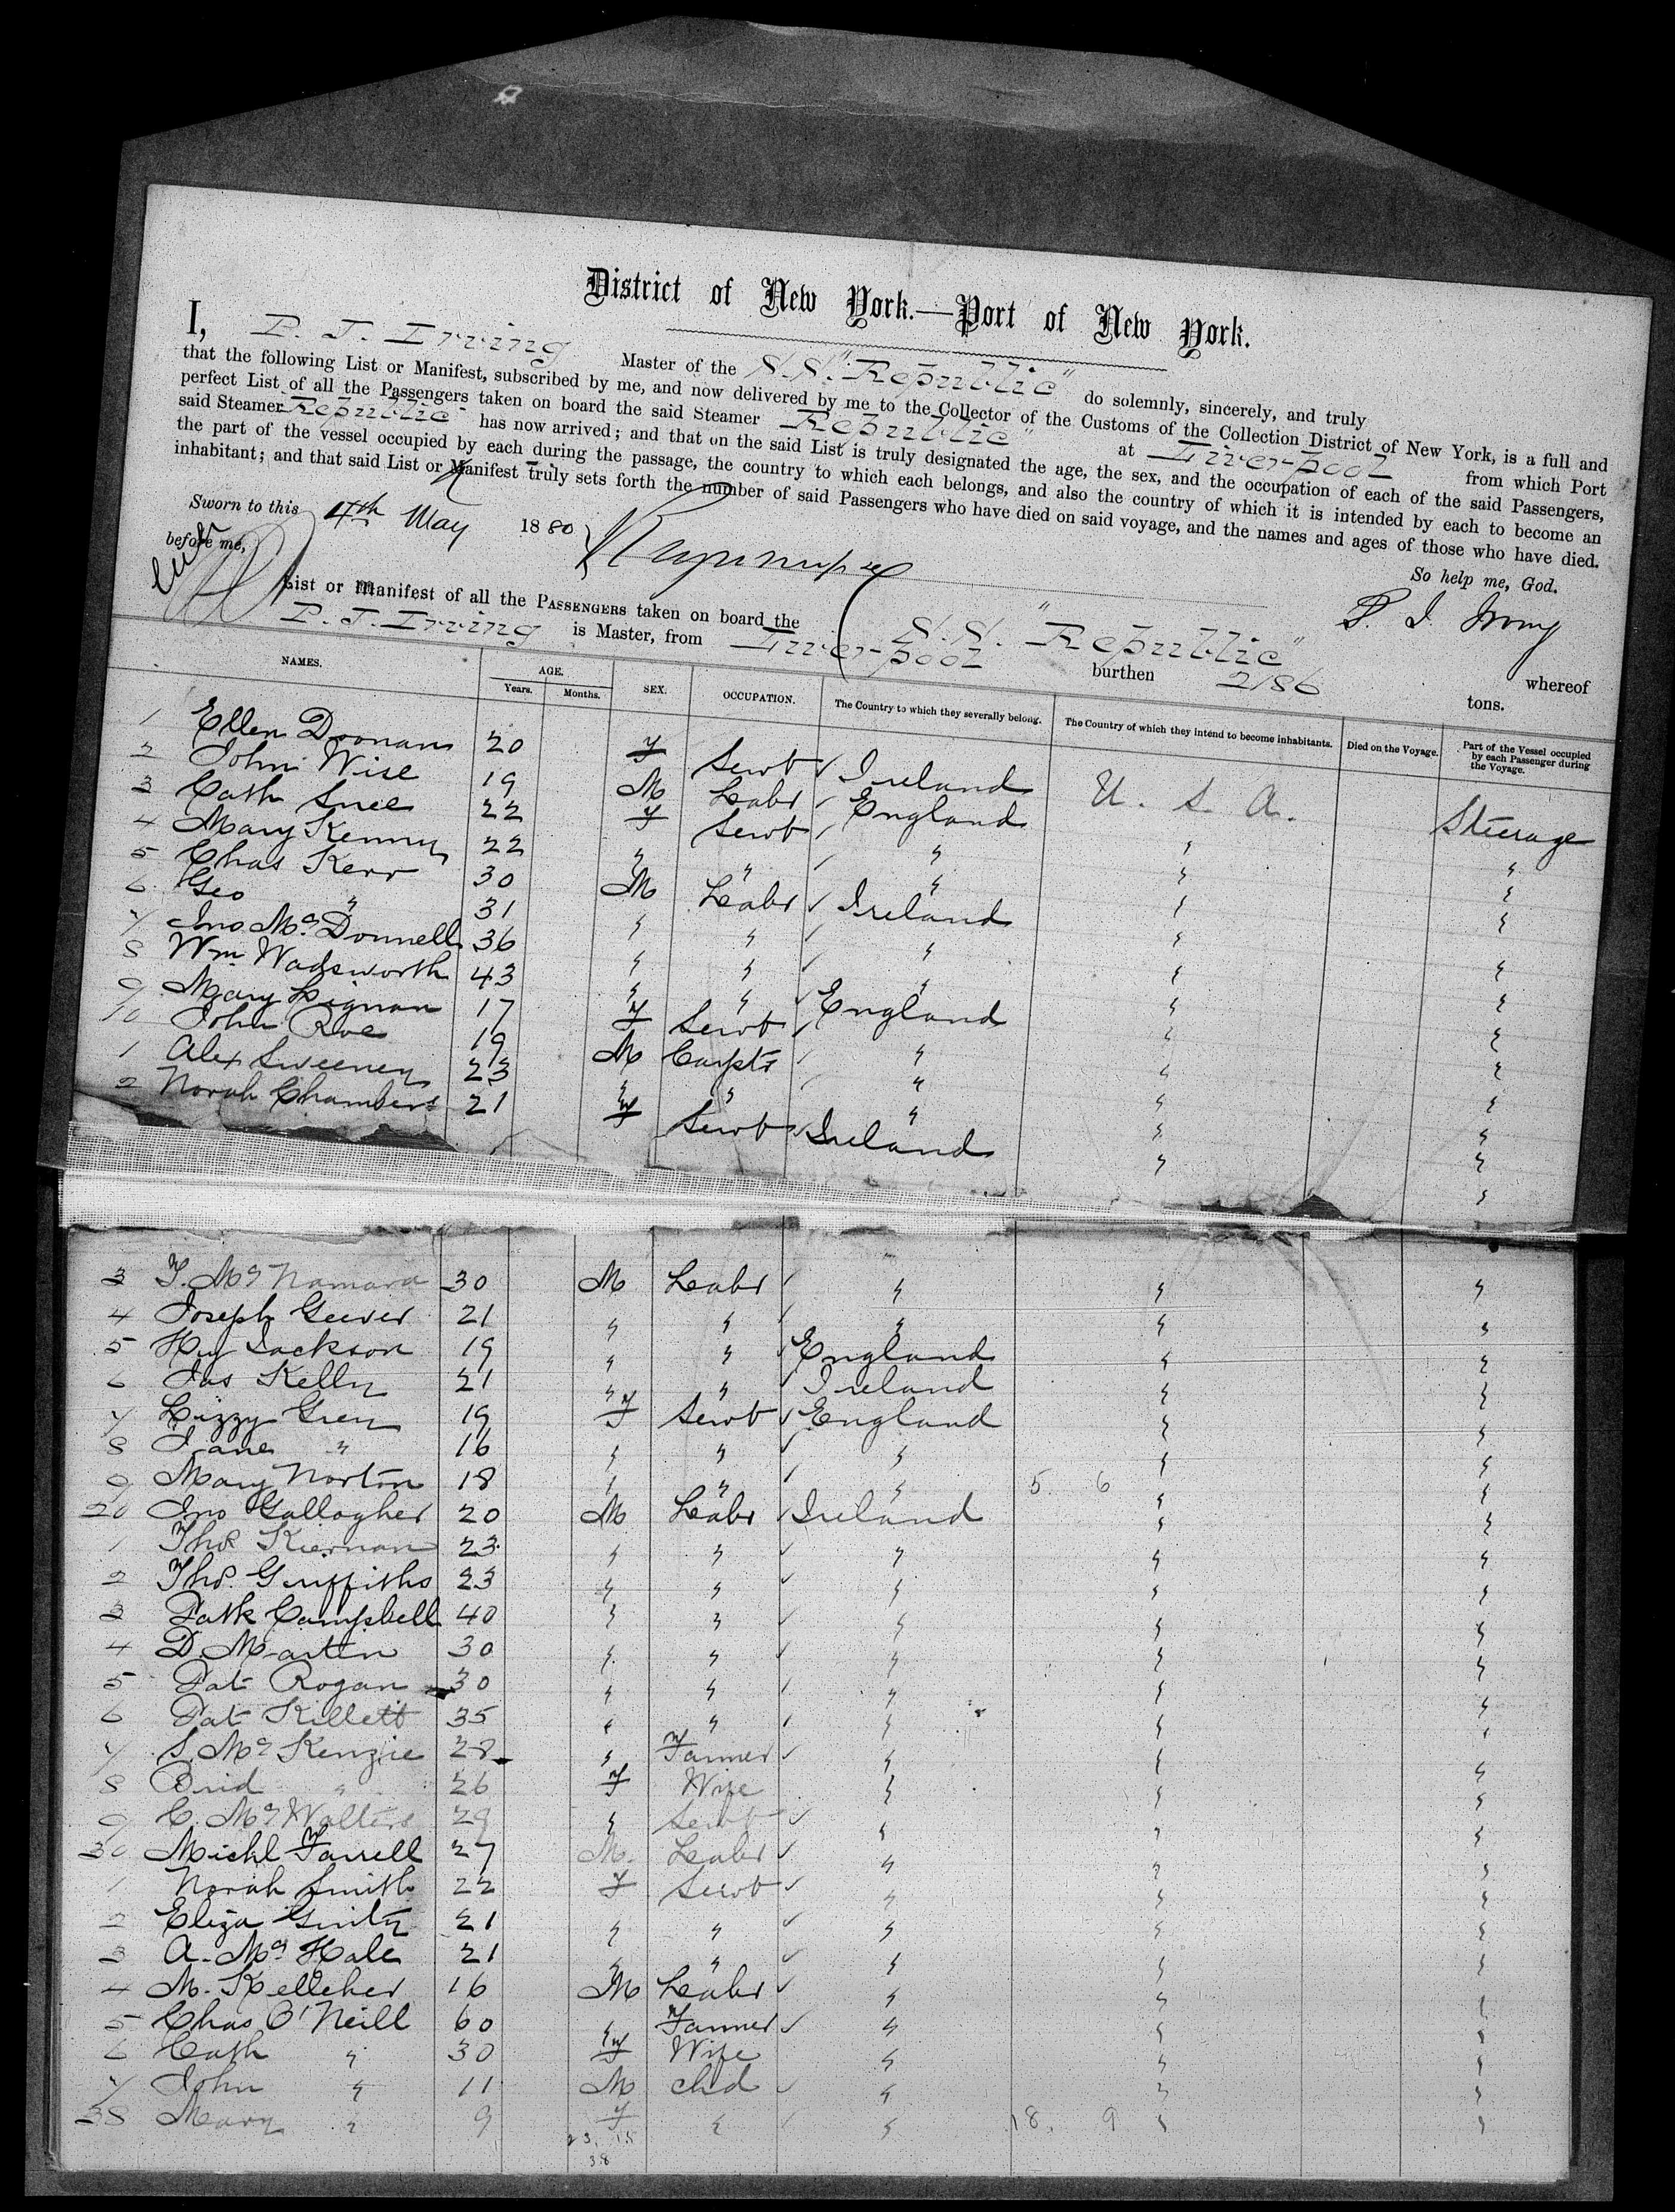 District of New York.—Port of New York.
I, P. J. Irving Master of the S.S. "Republic" do solemnly, sincerely, and truly
that the following List or Manifest, subscribed by me, and now delivered by me to the Collector of the Customs of the Collection District of New York, is a full and
perfect List of all the Passengers taken on board the said Steamer Republic" at Liverpool from which Port
said Steamer Republic" has now arrived; and that on the said List is truly designated the age, the sex, and the occupation of each of the said Passengers,
the part of the vessel occupied by each during the passage, the country to which each belongs, and also the country of which it is intended by each to become an
inhabitant; and that said List or Manifest truly sets forth the number of said Passengers who have died on said voyage, and the names and ages of those who have died.
Sworn to this 4th May 1880 So help me, God.
before me, P. J. Irving
List or Manifest of all the PASSENGERS taken on board the S.S. "Republic" whereof
P. J. Irving is Master, from Liverpool burthen 2186 tons.
NAMES. AGE. SEX. OCCUPATION. The Country to which they severally belong. The Country of which they intend to become inhabitants. Died on the Voyage. Part of the Vessel occupied by each Passenger during the Voyage.
Years. Months.
1 Ellen Doonan 20 F Servt Ireland U.S.A. Steerage
2 John Wise 19 M Labr England " "
3 Cath 22 F Servt " " "
4 Mary Kenny 22 " " " " "
5 Chas Kerr 30 M Labr Ireland " "
6 Geo " 31 " " " " "
7 Jno McDonnell 36 " " " " "
8 Wm Wadsworth 43 " " England " "
9 Mary Lignan 17 F Servt " " "
10 John Roe 19 M Carptr " " "
1 Alex Sweeney 23 " " " " "
2 Norah Chambers 21 F Servt Ireland " "
3 T. McNamara 30 M Labr " " "
4 Joseph Geever 21 " " " " "
5 Hy Jackson 19 " " England " "
6 Jas Kelly 21 " " Ireland " "
7 Lizzy Grey 19 F Servt England " "
8 Jane " 16 " " " " "
9 Mary Norton 18 " " " 5 6 " "
20 Jno Gallagher 20 M Labr Ireland " "
1 Thos Kiernan 23 " " " " "
2 Thos. Griffiths 23 " " " " "
3 Patk Campbell 40 " " " " "
4 D. Martin 30 " " " " "
5 Pat Rogan 30 " " " " "
6 Pat Killett 35 " " " " "
7 S. McKenzie 28 " Farmer " " "
8 Brid " 26 F Wife " " "
9 C. McWalters 29 " Servt " " "
30 Michl Farrell 27 M. Labr " " "
1 Norah Smith 22 F Servt " " "
2 Eliza Ginty 21 " " " " "
3 A. McHale 21 " " " " "
4 M. Kelleher 16 M Labr " " "
5 Chas O'Neill 60 " Farmer " " "
6 Cath " 30 F Wife " " "
7 John " 11 M chd " " "
38 Mary " 9 F " " 18. 9 " "
23. 15
38